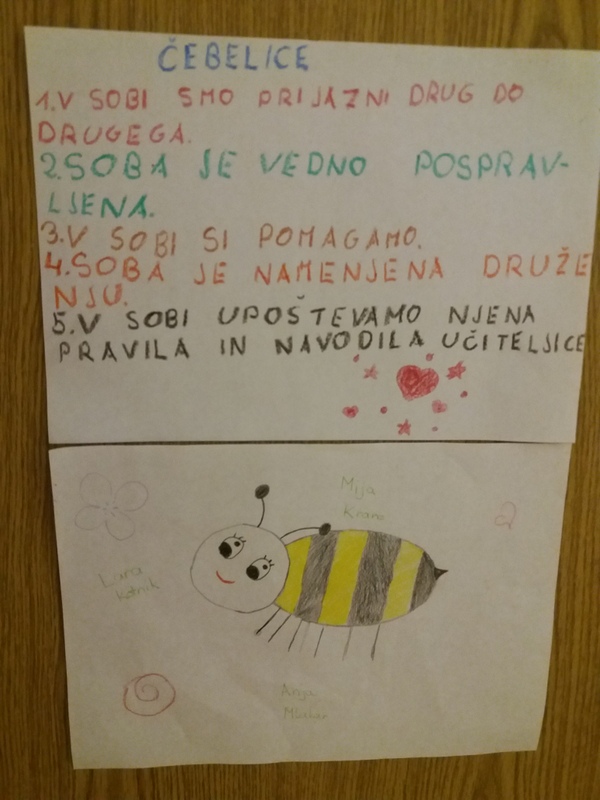 ČEBELICE
1.V SOBI SMO PRIJAZNI DRUG DO
DRUGEGA.
2.SOBA JE VEDNO POSPRAV-
LJENA.
3.V SOBI SI POMAGAMO.
4.SOBA JE NAMENJENA DRUŽE
NJU.
5.V SOBI UPOŠTEVAMO NJENA
PRAVILA IN NAVODILA UČITELJICE
Mija
2
Lara
Anja